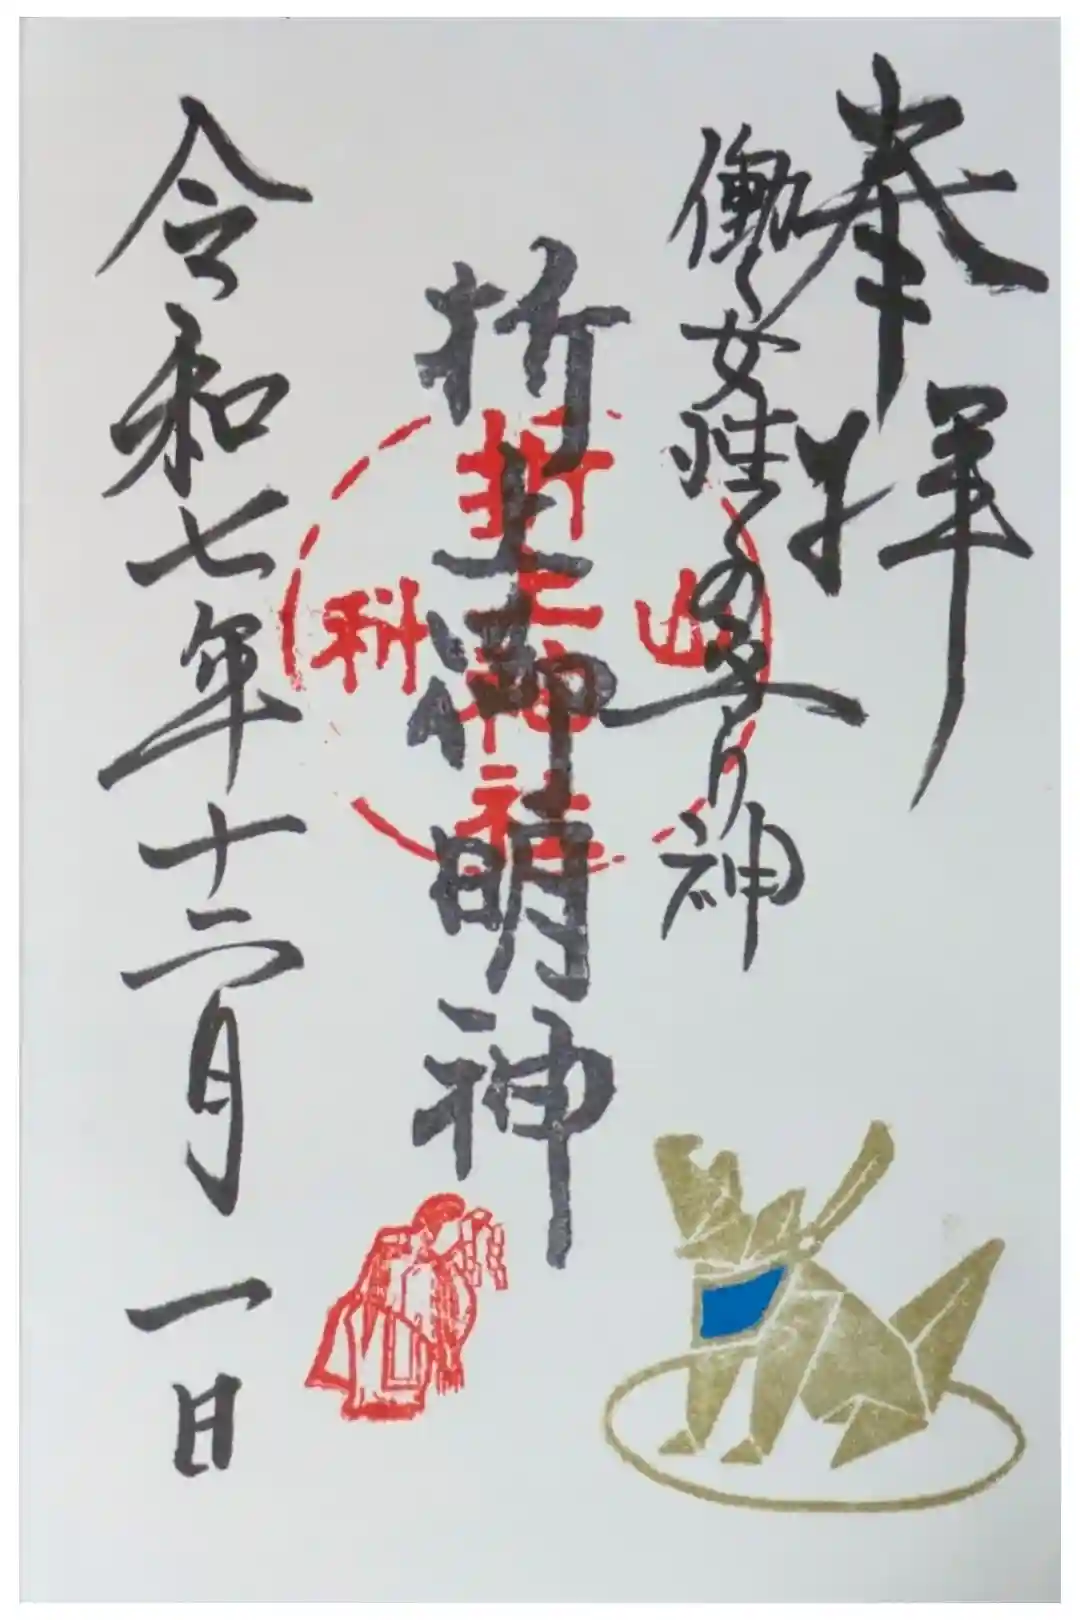 奉拜
働く女性の守り神
折上御明神
山科
折上神社
令和七年十二月一日